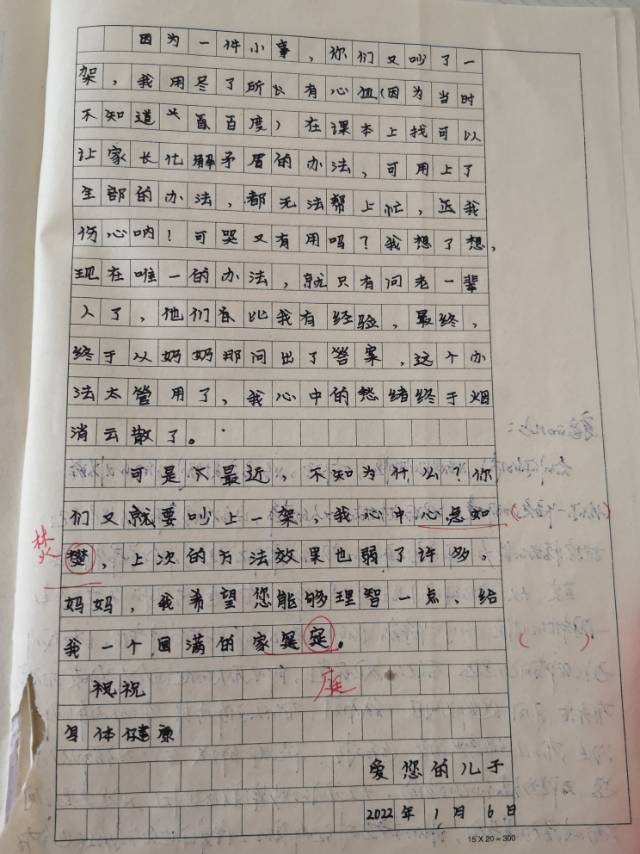 因为一件小事，你们又吵了一
架，我用尽了所以有心血(因为当时
不知道百度）在课本上找可以
让家长化解矛盾的办法，可用上了
全部的办法，都无法帮上忙，正我
伤心呐！可哭又有用吗？我想了想，
现在唯一的办法，就只有问老一辈
人了，他们各比我有经验，最终，
终于从奶奶那问出了答案，这个办
法太管用了，我心中的愁绪终于烟
消云散了。
可是只最近，不知为什么？你
们又就要吵上一架，我心中心急如
焚，上次的方法效果也弱了许多，
妈妈，我希望您能够理智一点、给
我一个园满的家庭。
庭
祝祝
身体健康
爱您的儿子
2022年1月6日
15×20=300